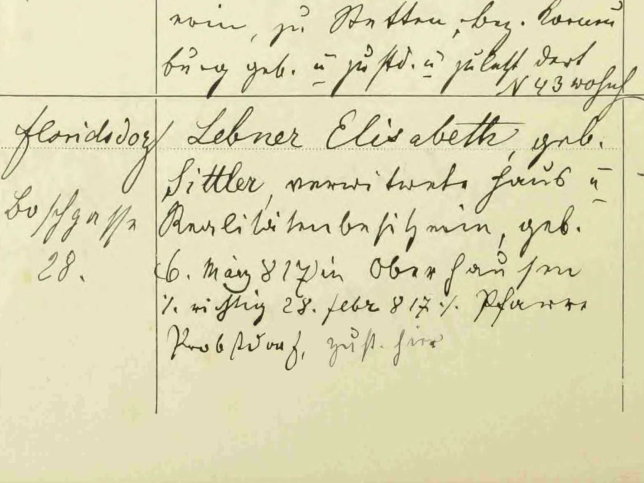 erin, zu Stetten, bez. Korneu
burg geb. u zust. u zuletzt dort
N 43 wohnh
Floridsdorf
Boschgasse
28.
Lebner Elisabeth, geb.
Sittler, verwitwete Haus u
Realitätenbesitzerin, geb.
(6. März 817) in Oberhausen
%. richtig 28. febr 817 %. Pfarre
Probstdorf, zust. hier